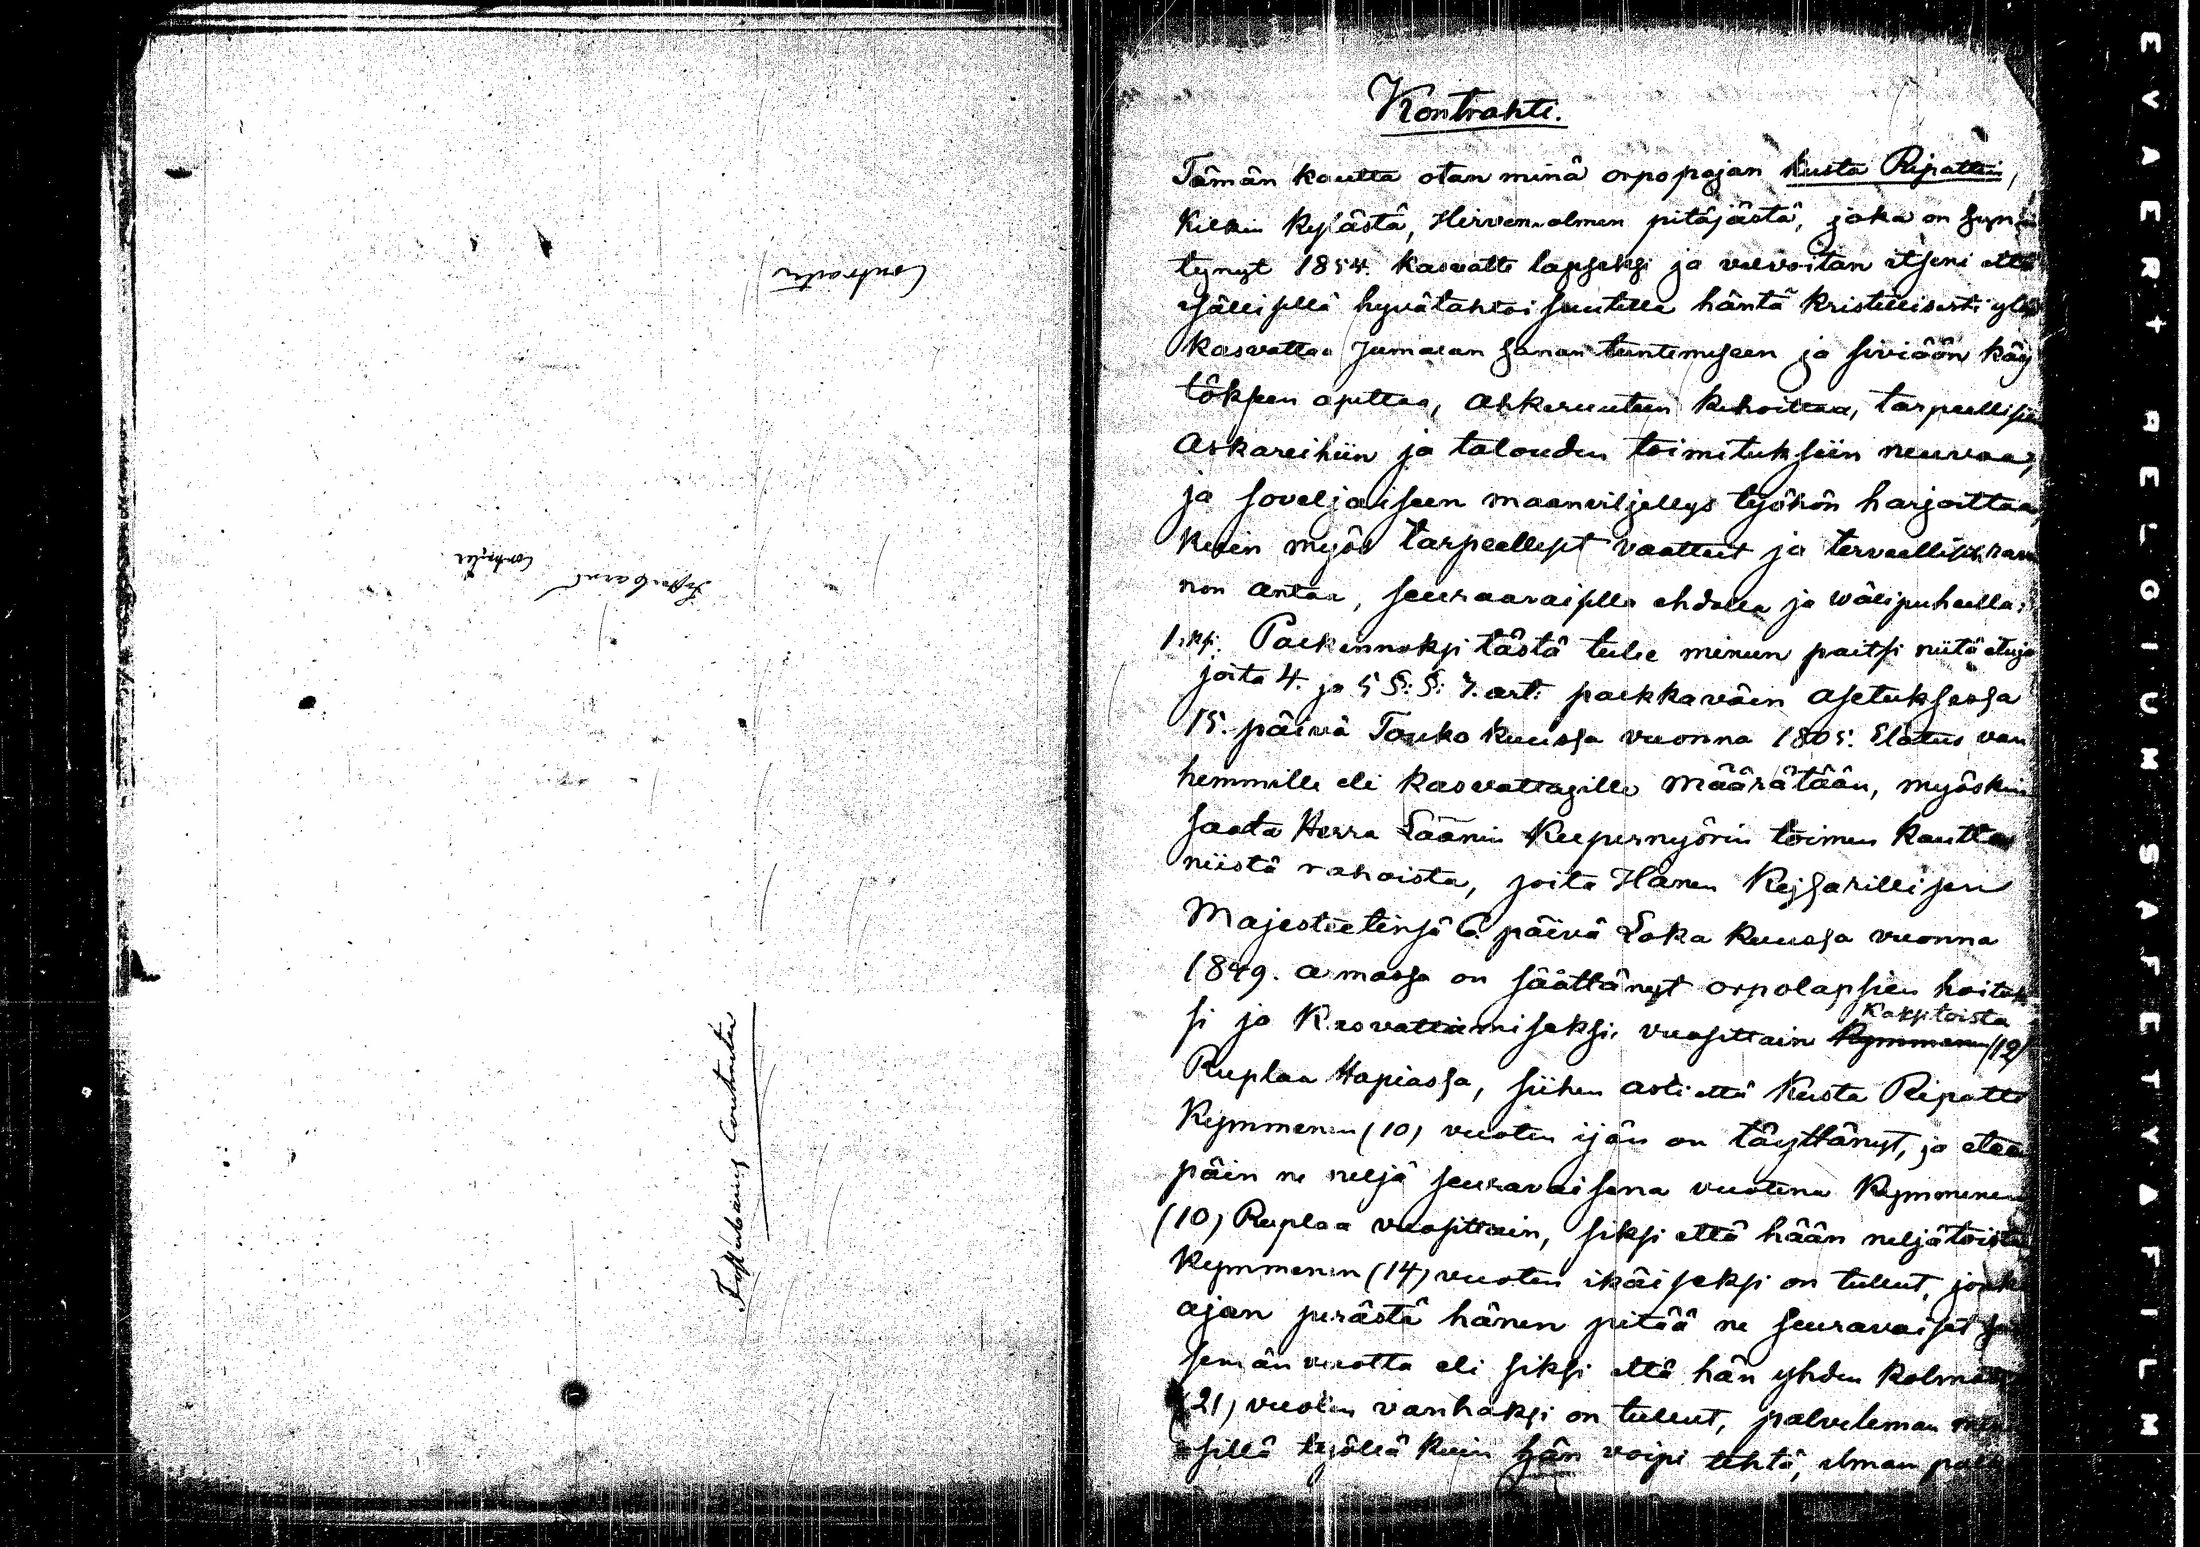 Contrahte
Fosterbarns Contrahte
Kontrahti.
Tämän kautta otan minä orpopojan Kusta Ripattin,
Kilkin kylästä, Hirvensalmen pitäjästä, joka on syn-
tynyt 1854. kasvatti lapseksi ja velvoitan itseni että
isällisellä hyvätahtoisuutella häntä kristillisesti ylös
kasvattaa Jumalan sanan tuntemiseen ja siviöön käy-
tökseen opettaa, ahkeruuteen kehoittaa, tarpeellisiin
askareihiin ja talouden toimituksiin neuvoa,
ja soveljaiseen maanviljellys työhön harjoittaa,
kuin myös tarpeelliset vaatteet ja terveellisen ravin
non antaa, seuraavaisella ehdolla ja wälipuheella:
1:ksi. Palkinnoksi tästä tulee minun paitsi niitä etuja
joita 4. ja 5 §:§: 7. art: palkkaväen asetuksessa
15. päivä Toukokuussa vuonna 1805. Elatus van
hemmille eli kasvattajille määrätään, myöskin
saada Herra Läänin Kupernyörin toimen kautta
niistä rahoista, joita Hänen Kejsarillisen
Majesteetinsä 6. päivä Loka kuussa vuonna
1849. armossa on säättänyt orpolapsien hoituk
si ja Kasvattamiseksi, vuosittain Kymmenen Kaksitoista (12)
Ruplaa Hopiassa, siihen asti että Kusta Ripatti
Kymmenen (10) vuoten ijän on täyttänyt, ja eteen
päin ne neljä seuravaisena vuotena Kymmenen
(10) Ruplaa vuosittain, siksi että hään neljätoista
Kymmenen (14) vuoten ikäiseksi on tullut, jonka
ajan perästä hänen pitää ne seuravaiset sei
semän vuotta eli siksi että hän yhden kolmatta
(21) vuoten vanhaksi on tullut, palveleman
sillä työllä kuin hän voipi tehtä, ilman
EVAERT BELGIUM SAFETY FILM